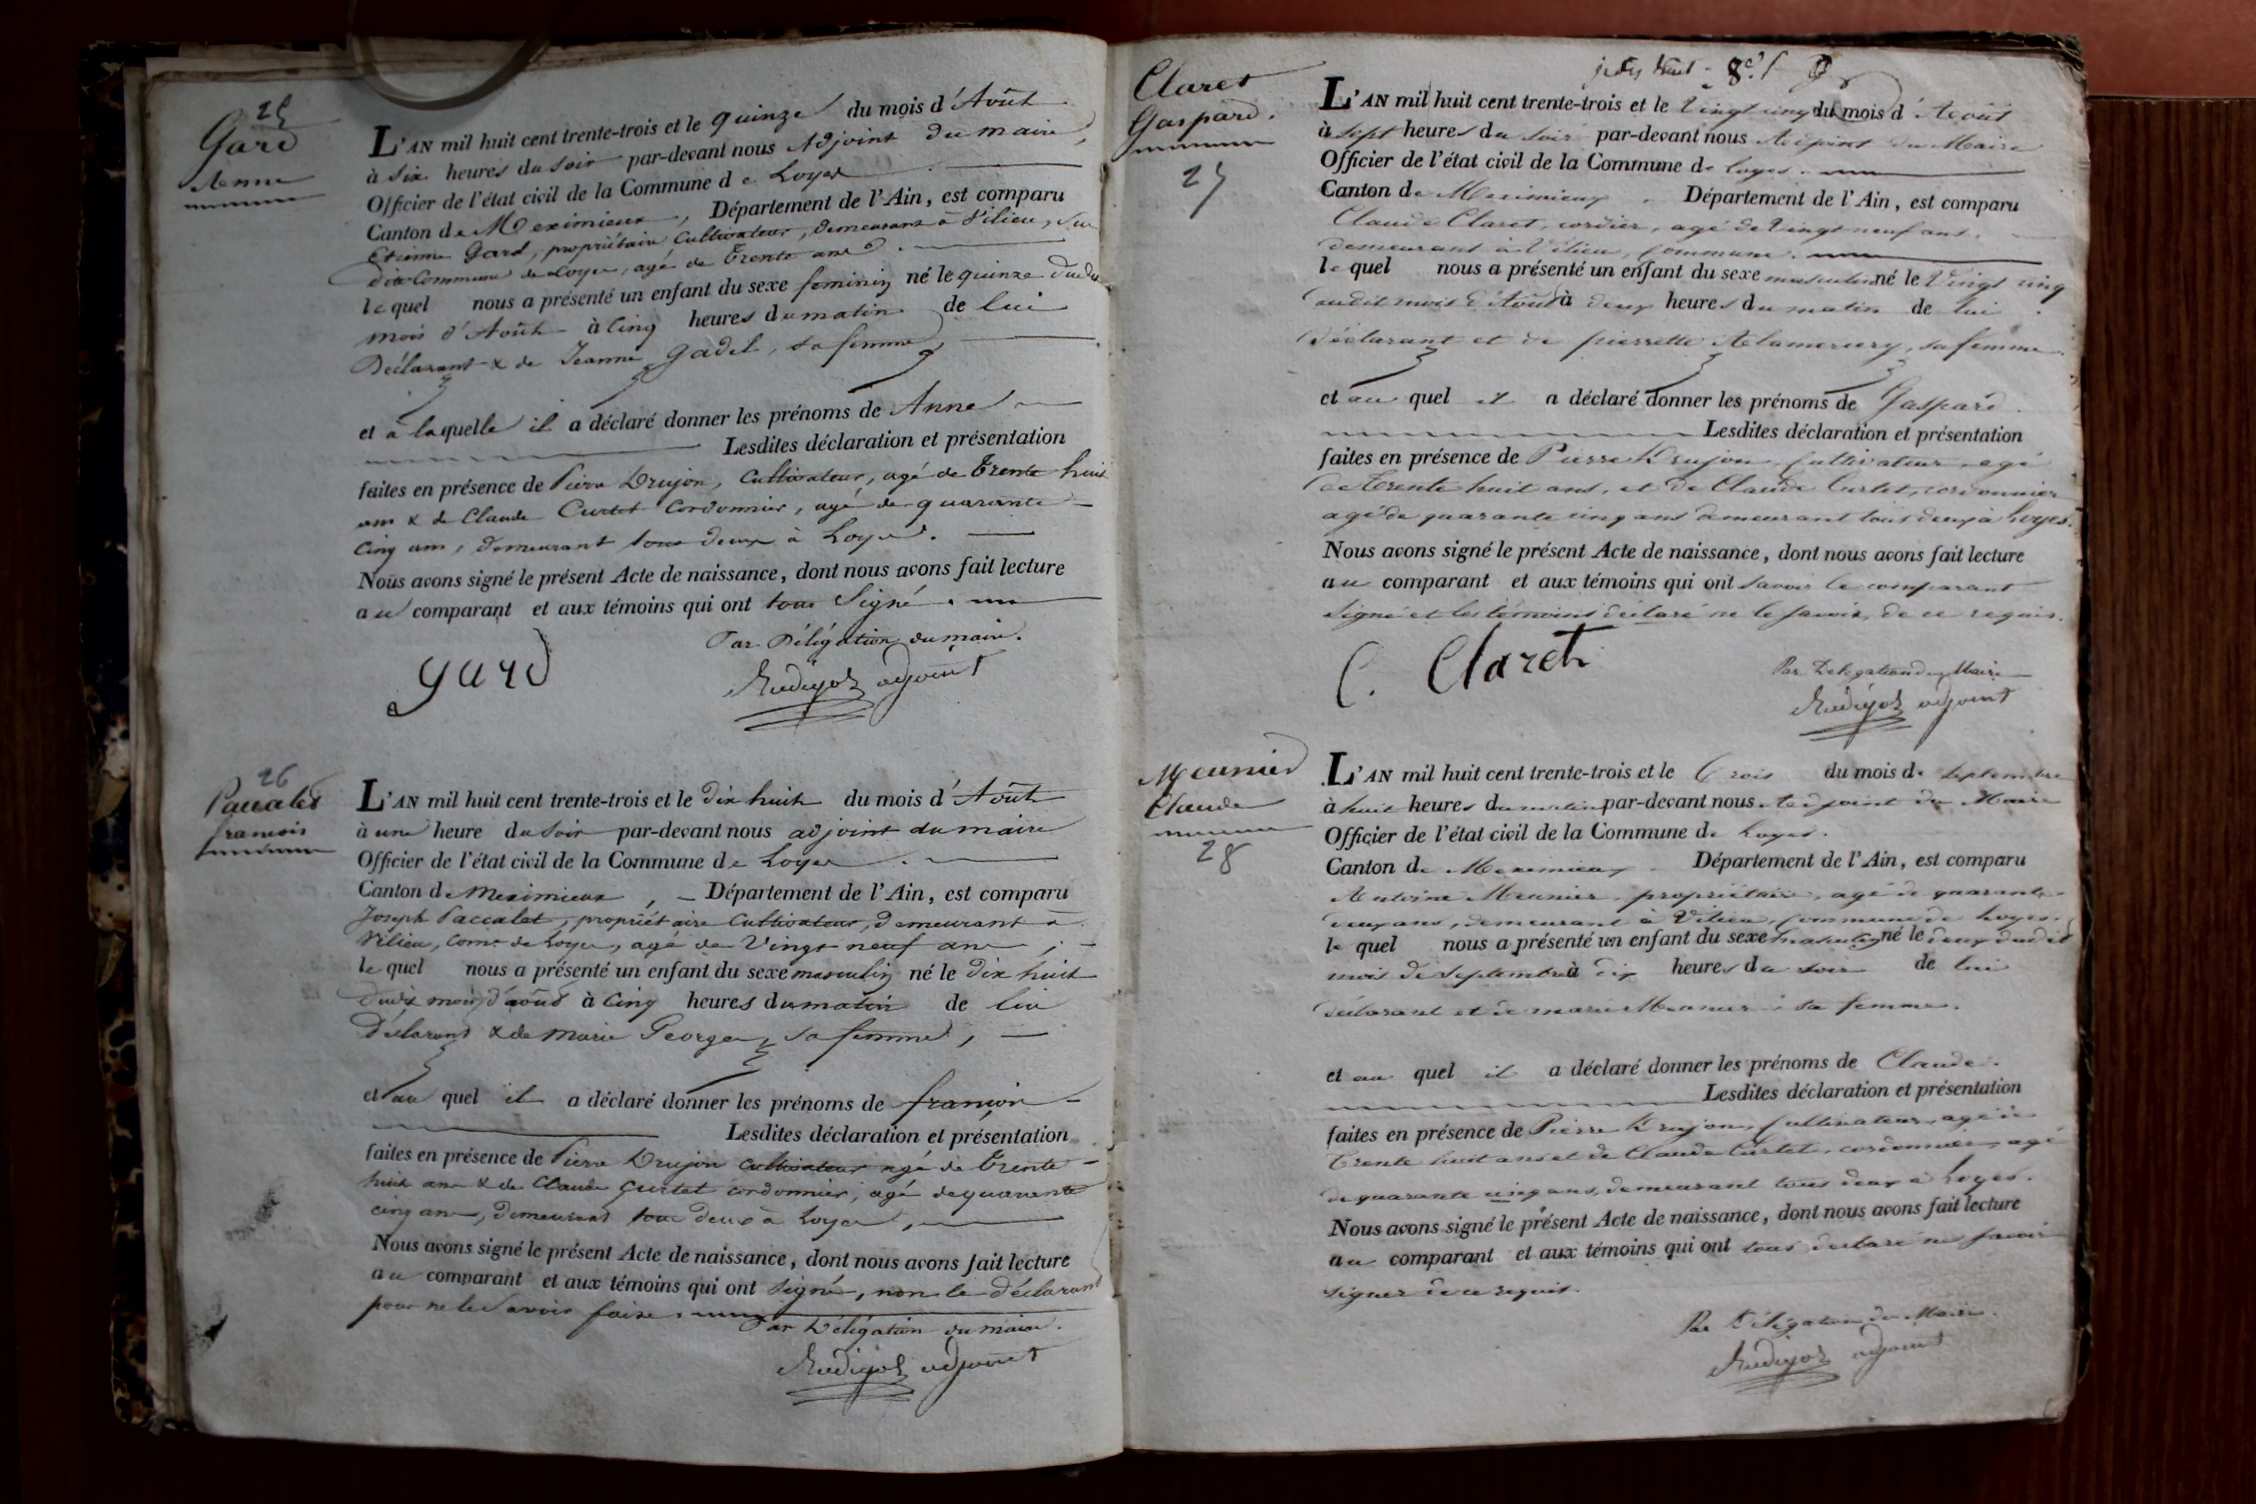 25
Gard
Anne
L'AN mil huit cent trente-trois et le quinze du mois d'Août
à six heures du soir par-devant nous adjoint du maire,
Officier de l'état civil de la Commune de Loyes
Canton de Meximieux, Département de l'Ain, est comparu
Etienne Gard, propriétaire cultivateur, demeurant à Vilieu, sur
dite Commune de Loyes, agé de trente ans
le quel nous a présenté un enfant du sexe feminin né le quinze dudit
mois d'Août à cinq heures du matin de lui
Déclarant & de Jeanne Gadel, sa femme
et à laquelle il a déclaré donner les prénoms de Anne
Lesdites déclaration et présentation
faites en présence de Pierre Drujon, Cultivateur, agé de trente huit
ans & de Claude Curtet Cordonnier, agé de quarante
cinq ans, demeurant tous deux à Loyes.
Nous avons signé le présent Acte de naissance, dont nous avons fait lecture
au comparant et aux témoins qui ont tous signé.
Par Délégation du maire.
gard
adjoint
26
Paccalet
francois
L'AN mil huit cent trente-trois et le dix huit du mois d'Août
à une heure du soir par-devant nous adjoint du maire
Officier de l'état civil de la Commune de Loyes.
Canton de Meximieux, Département de l'Ain, est comparu
Joseph Paccalet, propriétaire Cultivateur, demeurant à
Vilieu, Comne de Loyes, agé de Vingt neuf ans;
le quel nous a présenté un enfant du sexe masculin né le dix huit
dudit mois d'août à cinq heures du matin de lui
Déclarant & de Marie George, sa femme,
et au quel il a déclaré donner les prénoms de françois
Lesdites déclaration et présentation
faites en présence de Pierre Drujon cultivateur agé de trente
huit ans & de Claude Curtet cordonnier, agé de quarante
cinq ans, demeurant tous deux à Loyes,
Nous avons signé le présent Acte de naissance, dont nous avons fait lecture
au comparant et aux témoins qui ont signé, non le déclarant
pour ne le savoir faire.
Par Délégation du maire.
adjoint
Claret
Gaspard.
27
L'AN mil huit cent trente-trois et le Vingt cinq du mois d'Août
à sept heures du soir par-devant nous Adjoint du Maire
Officier de l'état civil de la Commune de Loyes.
Canton de Meximieux. Département de l'Ain, est comparu
Claude Claret, cordier, agé de Vingt neuf ans,
demeurant à Vilieu, Commune.
le quel nous a présenté un enfant du sexe masculin né le Vingt cinq
dudit mois d'Août à deux heures du matin de lui
Déclarant et de pierrette, sa femme.
et au quel il a déclaré donner les prénoms de Gaspard.
Lesdites déclaration et présentation
faites en présence de Pierre Drujon, Cultivateur, agé
de Trente huit ans, et de Claude Curtet, cordonnier
agé de quarante cinq ans demeurant tous deux à Loyes.
Nous avons signé le présent Acte de naissance, dont nous avons fait lecture
au comparant et aux témoins qui ont savoir le comparant
signé et les témoins declaré ne le savoir, de ce requis.
C. Claret
Par Delegation du Maire
adjoint
Meunier
Claude
28
L'AN mil huit cent trente-trois et le Trois du mois de Septembre
à huit heures du matin par-devant nous Adjoint du Maire
Officier de l'état civil de la Commune de Loyes.
Canton de Meximieux. Département de l'Ain, est comparu
Antoine Meunier, propriétaire, agé de quarante
deux ans, demeurant à Vilieu, Commune de Loyes.
le quel nous a présenté un enfant du sexe masculin né le deux dudit
mois de Septembre à dix heures du soir de lui
déclarant et de marie, sa femme.
et au quel il a déclaré donner les prénoms de Claude.
Lesdites déclaration et présentation
faites en présence de Pierre Drujon, Cultivateur, agé de
Trente huit ans et de Claude Curtet, cordonnier, agé
de quarante cinq ans, demeurant tous deux à Loyes.
Nous avons signé le présent Acte de naissance, dont nous avons fait lecture
au comparant et aux témoins qui ont tous declaré ne savoir
signer de ce requis.
Par Délégation du Maire.
adjoint